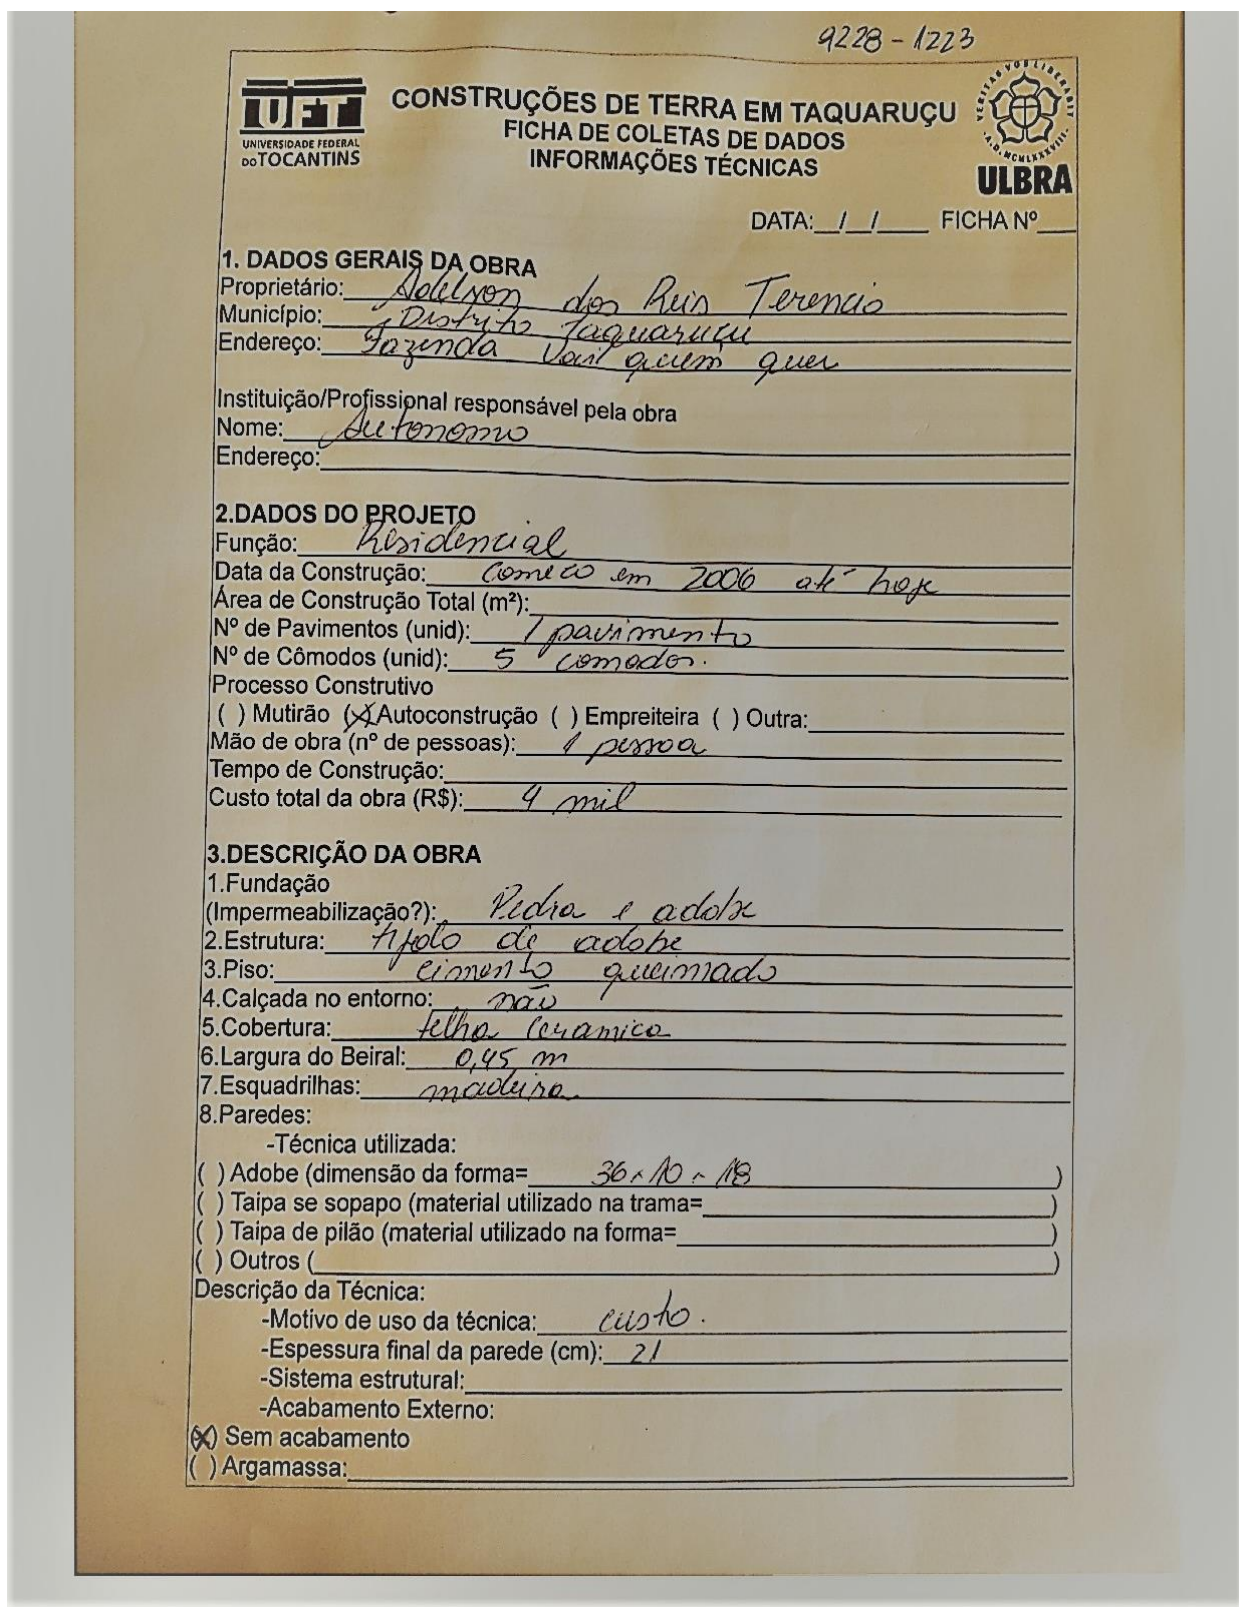 9228-1223
UFT
UNIVERSIDADE FEDERAL
DO TOCANTINS
CONSTRUÇÕES DE TERRA EM TAQUARUÇU
FICHA DE COLETAS DE DADOS
INFORMAÇÕES TÉCNICAS
VERITAS VOS LIBERABIT
A.D. MCMLXXXVIII
ULBRA
DATA:__/__/____ FICHA Nº___
1. DADOS GERAIS DA OBRA
Proprietário: Adelson dos Reis Terencio
Município: Distrito Taquaruçu
Endereço: Fazenda Vai quem quer
Instituição/Profissional responsável pela obra
Nome: Autonomo
Endereço:
2.DADOS DO PROJETO
Função: Residencial
Data da Construção: começo em 2006 até hoje
Área de Construção Total (m²):
Nº de Pavimentos (unid): 1 pavimento
Nº de Cômodos (unid): 5 comodos.
Processo Construtivo
( ) Mutirão (X) Autoconstrução ( ) Empreiteira ( ) Outra:
Mão de obra (nº de pessoas): 1 pessoa
Tempo de Construção:
Custo total da obra (R$): 4 mil
3.DESCRIÇÃO DA OBRA
1.Fundação
(Impermeabilização?): Pedra e adobe
2.Estrutura: tijolo de adobe
3.Piso: cimento queimado
4.Calçada no entorno: não
5.Cobertura: telha ceramica
6.Largura do Beiral: 0,45 m
7.Esquadrilhas: madeira
8.Paredes:
-Técnica utilizada:
( ) Adobe (dimensão da forma= 36 x 10 x 18 )
( ) Taipa se sopapo (material utilizado na trama= )
( ) Taipa de pilão (material utilizado na forma= )
( ) Outros ( )
Descrição da Técnica:
-Motivo de uso da técnica: custo.
-Espessura final da parede (cm): 21
-Sistema estrutural:
-Acabamento Externo:
(X) Sem acabamento
( ) Argamassa: